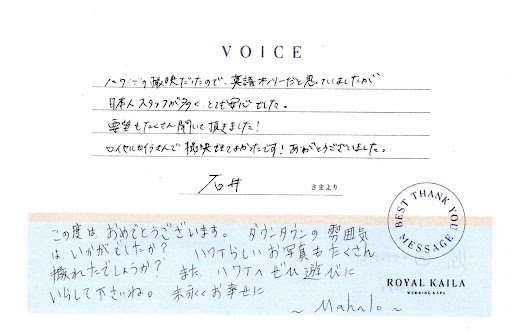 VOICE
ハワイでの撮映だったので、英語オンリーだと思っていましたが
日本人スタッフが多く、とても安心でした。
要望もたくさん聞いて頂きました!
ロイヤルカイラさんで撮映できてよかったです!ありがとうございました。
石井 さまより
BEST THANK YOU MESSAGE
この度は おめでとうございます。 ダウンタウンの 雰囲気
は いかがでしたか? ハワイらしい お写真も たくさん
撮れたでしょうか? また ハワイへ ぜひ 遊びに
いらして下さいね。 末永くお幸せに
~ Mahalo ~
ROYAL KAILA
WEDDING & SPA